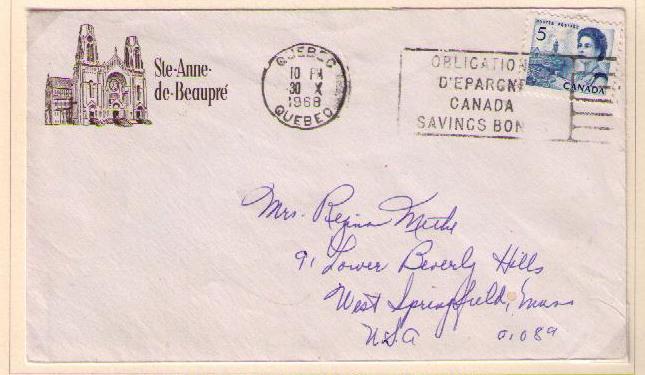 Ste-Anne-
de-Beaupré
QUEBEC
10 PM
30 X
1968
QUEBEC
OBLIGATION
D'EPARGNE
CANADA
SAVINGS BON
POSTES POSTAGE
5
CANADA
Mrs. Regina Methe
91 Lower Beverly Hills
West Springfield, Mass
USA 01089